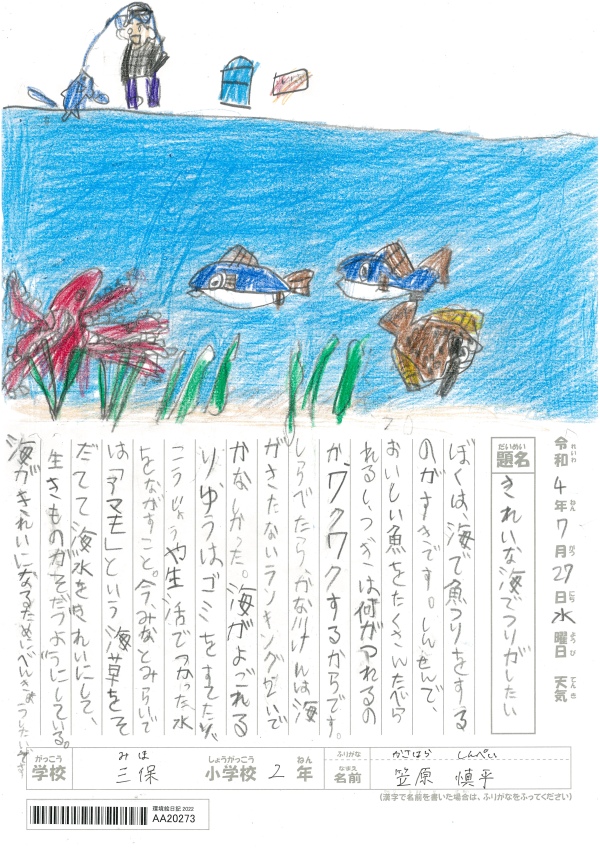 令和4年7月27日水曜日 天気
れいわ ねん がつ にち ようび てんき
だいめい
題名
きれいな海でつりがしたい
ぼくは、海で魚つりをする
のがすきです。しんせんで、
おいしい魚をたくさんたべら
れるし、つぎは何がつれるの
か、ワクワクするからです。
しらべたら、かながけんは海
がきたないランキング2いで
かなしかった。海がよごれる
り、ゆうはゴミをすてたり、
こうじょうや生活でつかった水
をながすこと。今、みなとみらいで
は「アマモ」という海草をそ
だてて海水をきれいにして、
生きものがそだつようにしている。
海がきれいになるためにべんきょうしたいです
がっこう
学校
みほ
三保
しょうがっこう
小学校
2
ねん
年
ふりがな
かさはら しんぺい
なまえ
名前
笠原 慎平
(漢字で名前を書いた場合は、ふりがなをふってください)
環境絵日記 2022
AA20273